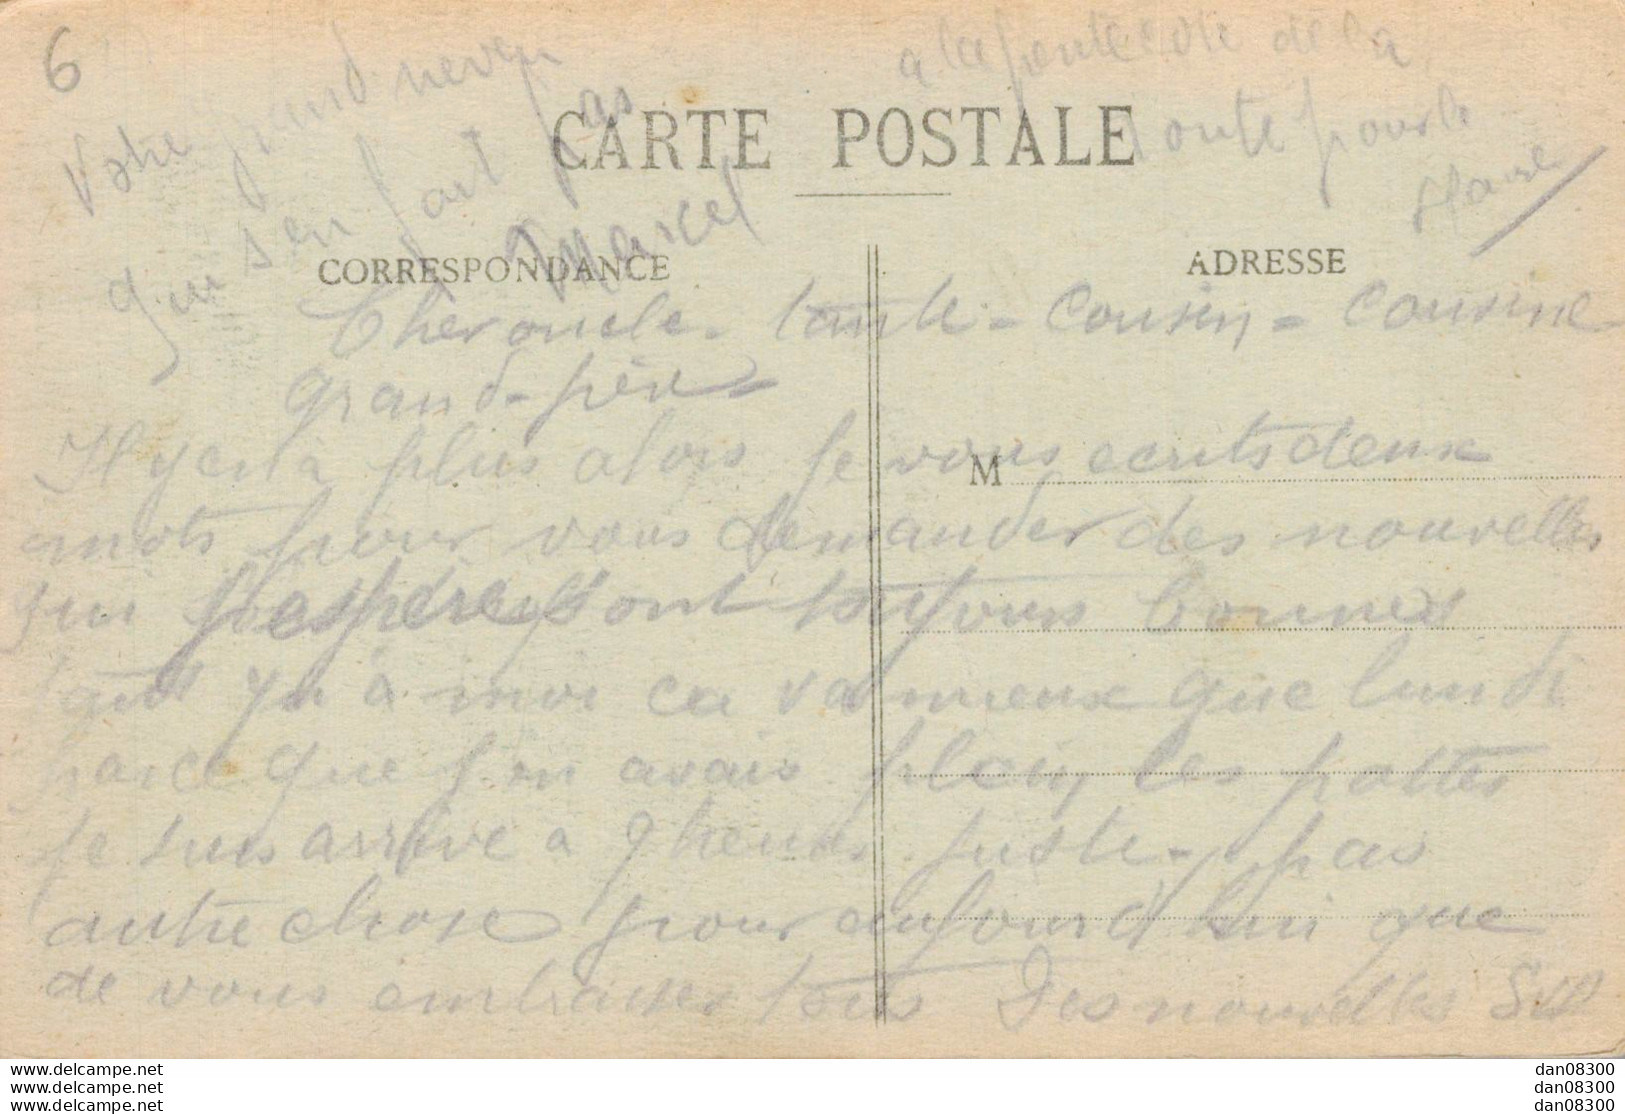 6
Votre grand neveu
qui s'en fait pas
Marcel
a la de la
route pour la
CARTE POSTALE
CORRESPONDANCE
ADRESSE
Cher oncle - tante - cousin - cousine
grand-père
Il y est à plus alors je vous ecrits deux
M
mots pour vous demander des nouvelles
qui j'espère sont toujours bonnes
quand à moi ca va mieux que lundi
parce que j'en avais plein les pattes
je suis arrivé a 9 heures juste - pas
autre chose pour aujourd'hui que
de vous embrasser tous Des nouvelles SVP
dan08300
dan08300
dan08300
www.delcampe.net
www.delcampe.net
www.delcampe.net